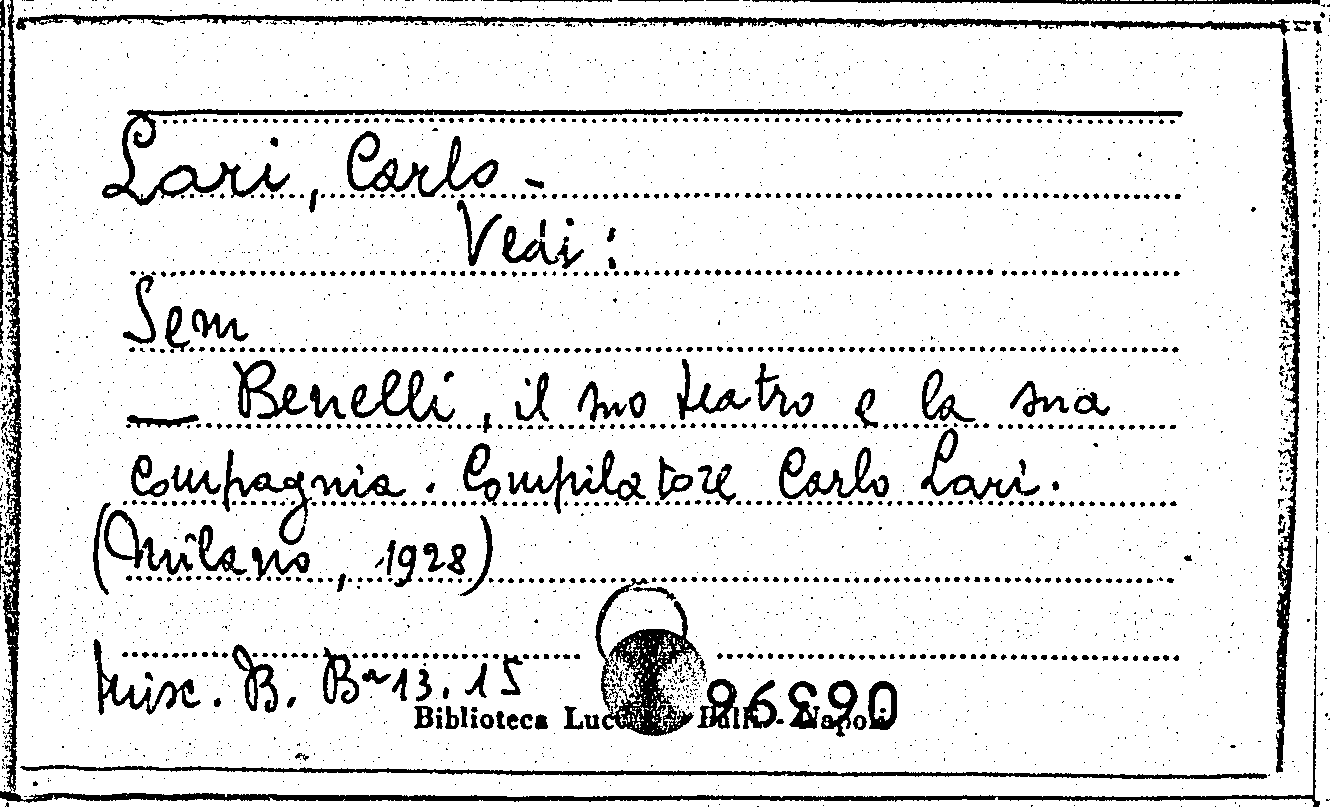 Lari, Carlo -
Vedi:
Sem
— Benelli, il suo teatro e la sua
compagnia. Compilatore Carlo Lari.
(Milano, 1928)
Misc. B. Bª 13. 15
Biblioteca Palli - Napoli